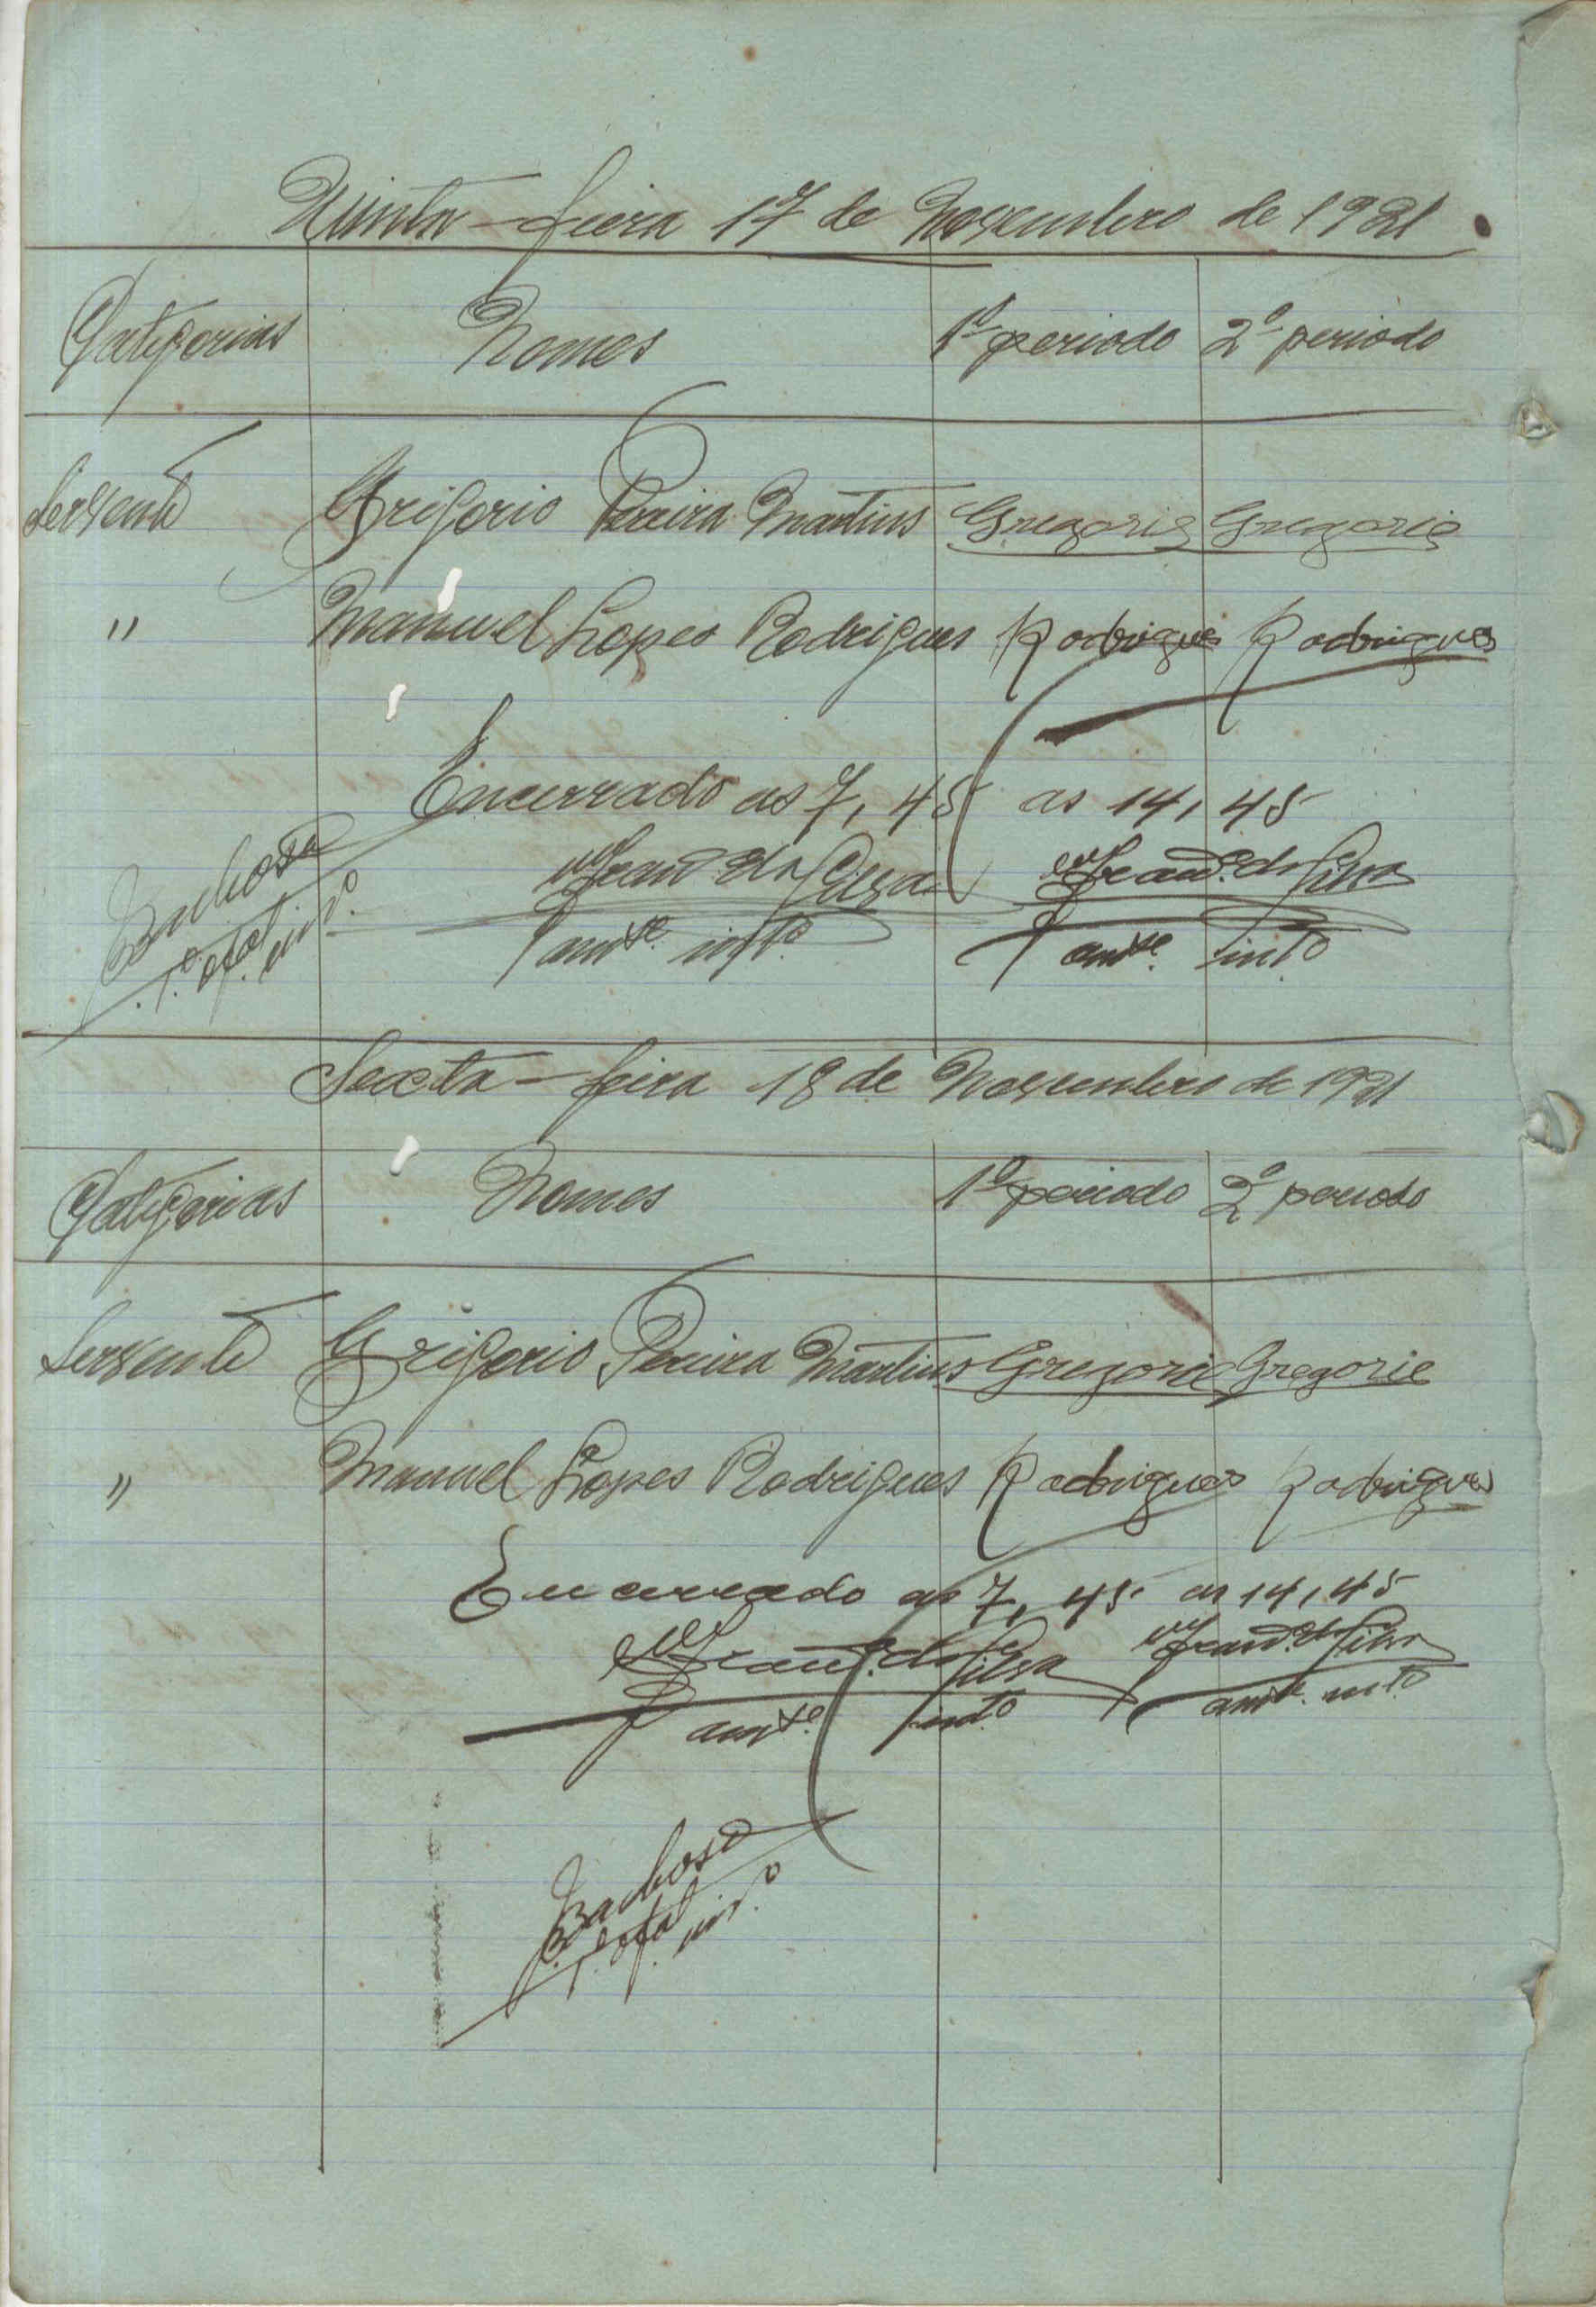 Quinta-feira 17 de Novembro de 1921
Categorias Nomes 1º periodo 2º periodo
Servente Grigorio Pereira Martins Gregorio Gregorio
" Manuel Lopes Rodrigues Rodrigues Rodrigues
Encerrado as 7,45 as 14,45
da Silva da Silva
amte. into. amte. into
Barbosa
1º. ofal. into.
Sexta-feira 18 de Novembro de 1921
Categorias Nomes 1º periodo 2º periodo
Servente Grigorio Pereira Martins Gregorio Gregorio
" Manuel Lopes Rodrigues Rodrigues Rodrigues
Encerrado as 7,45 as 14,45
da Silva da Silva
amte. into. amte. into
Barbosa
1º. ofal. into.